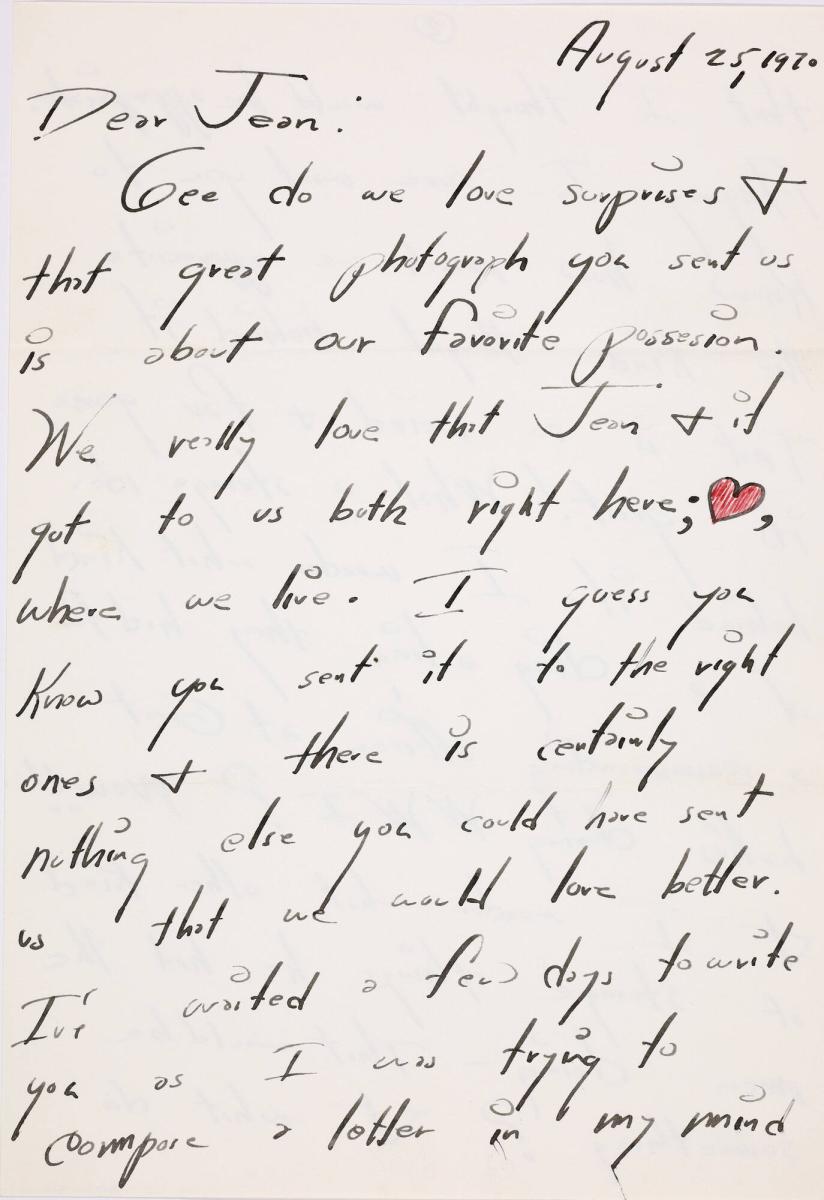 August 25, 1970
Dear Jean:
Gee do we love surprises &
that great photograph you sent us
is about our favorite possesion.
We really love that Jean & it
got to us both right here; ♥,
where we live. I guess you
know you sent it to the right
ones & there is certainly
nothing else you could have sent
us that we would love better.
I've waited a few days to write
you as I was trying to
compose a letter in my mind